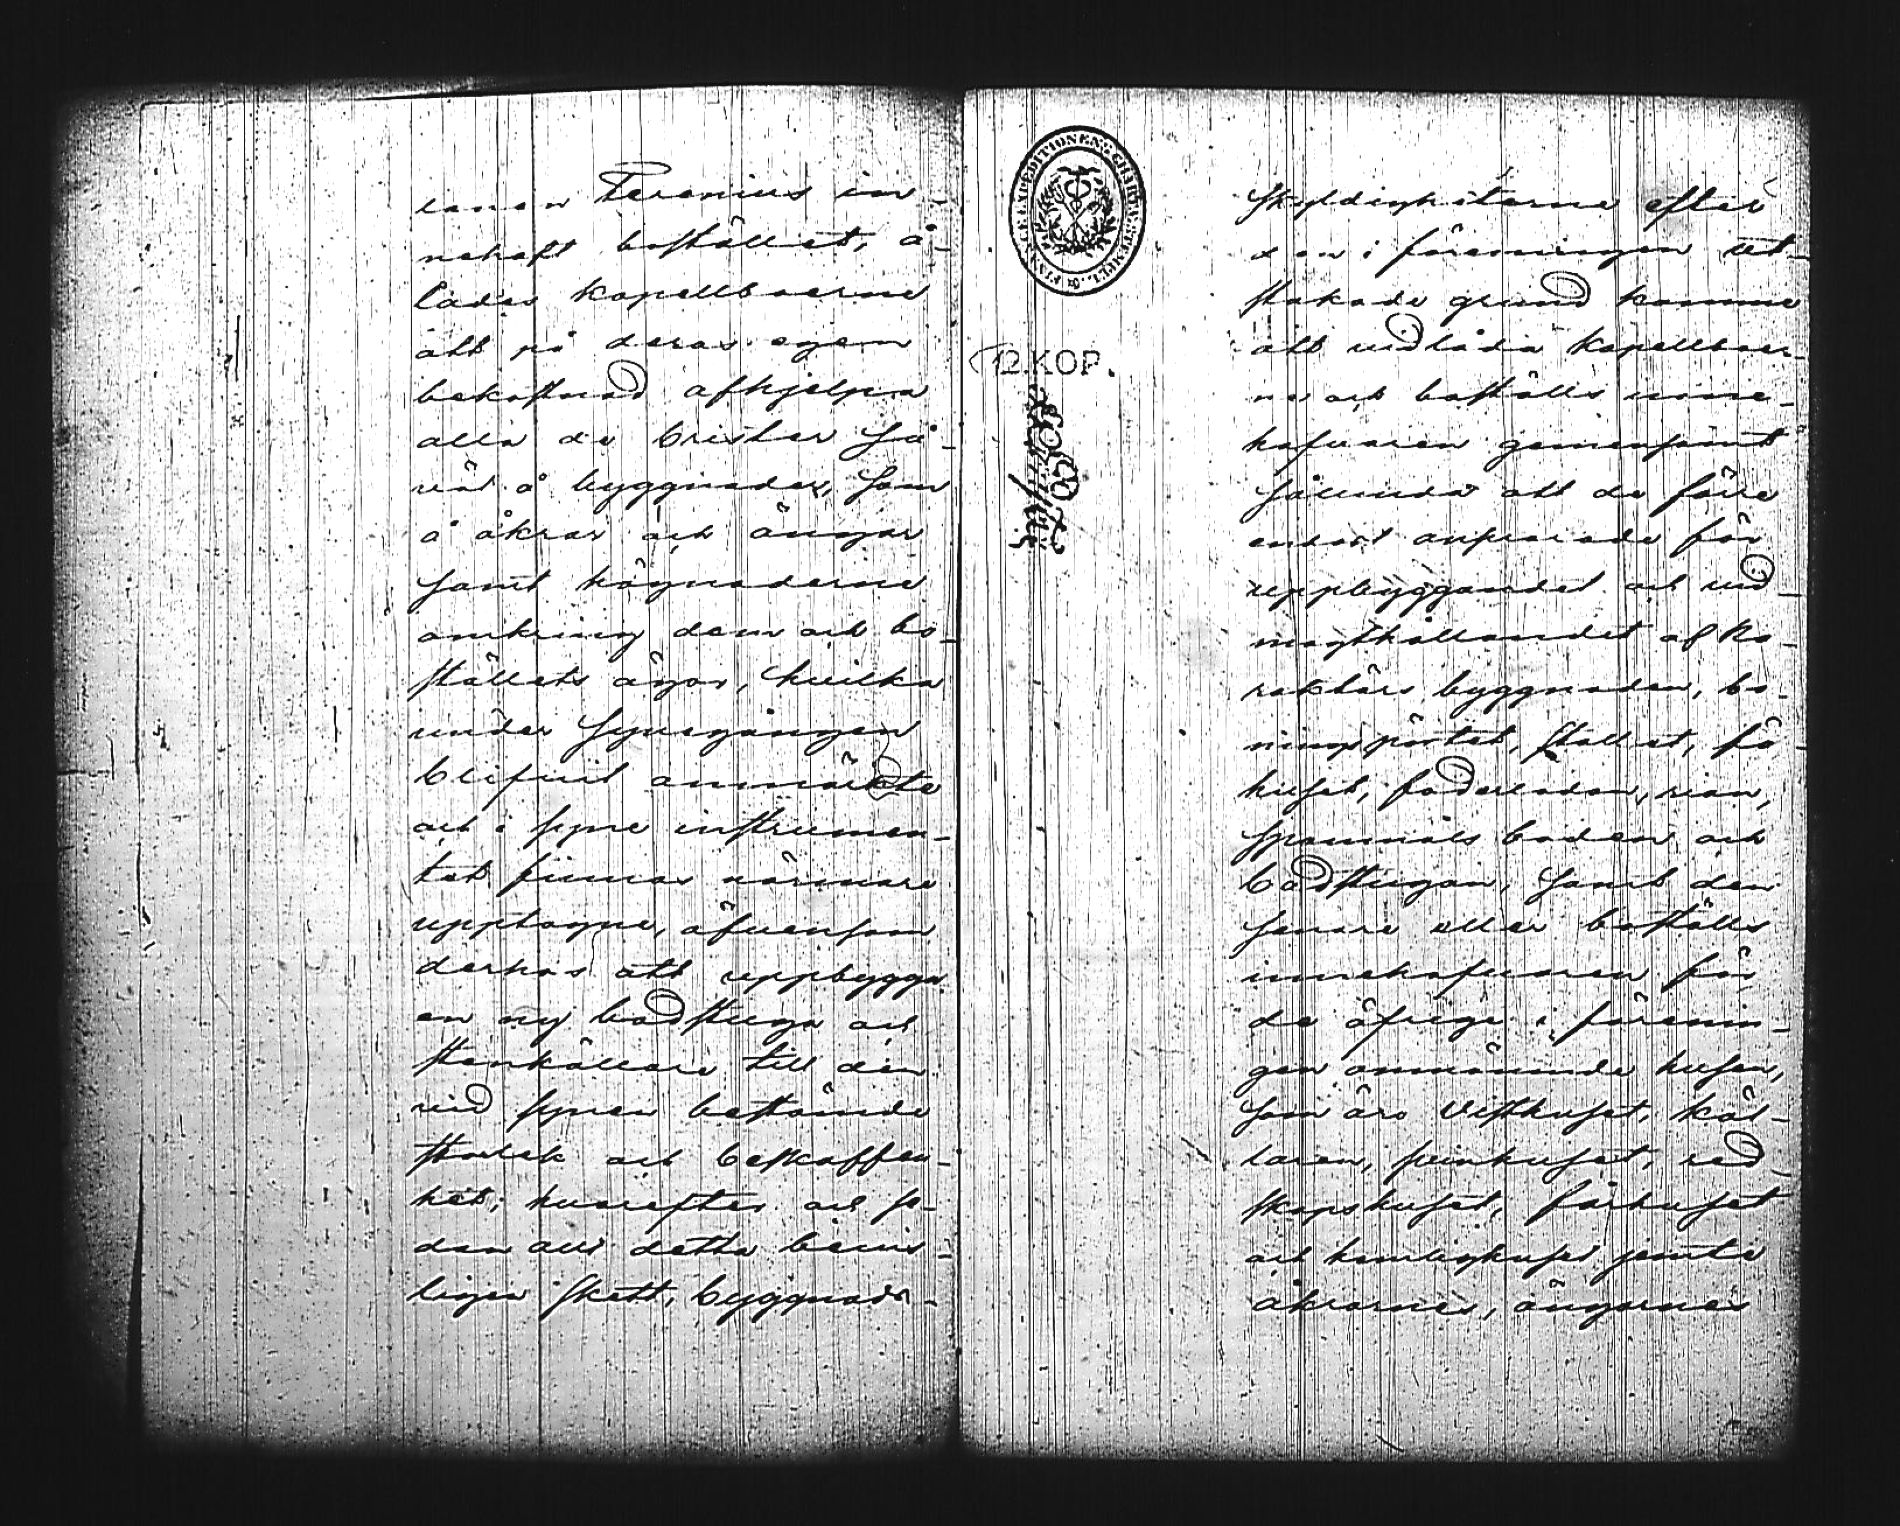 lanen Ferenius in-
nehaft bostället, å-
lades kapellboerne
att på deras egen
bekostnad afhjelpa
alla de brister så-
väl å byggnader, som
å åkrar och ängar
samt hägnaderne
omkring dem och bo-
ställets ägor, hvilka
under synegången
blifvit anmärkte
och i syne instrumen-
tet finnas närmare
upptagne, äfvensom
derhos att uppbygga
en ny badstuga och
stenkällare till den
vid synen bestämde
storlek och beskaffen-
het; hvarefter och se-
dan allt detta bevis-
ligen skett, byggnads-
12.KOP.
skyldigheterne efter
den i föreningen ut-
stakade grund komme
att vidlåda kapellboer-
ne och boställs inne-
hafvaren gemensamt
sålunda att de förre
endast ansvarade för
uppbyggandet och vid-
magthållandet af ka-
raktärs byggnaden, bo-
ningspörtet, stallet, fä-
huset, foderladan, rian,
spannmåls boden och
badstugan, samt den
senare eller boställs
innehafvaren för
de öfrige i förenin-
gen omnämnde husen,
som äro visthuset, käl-
laren, svinhuset, red-
skapshuset, fårhuset
och hemlighuset jemte
åkrarnes, ängarnes